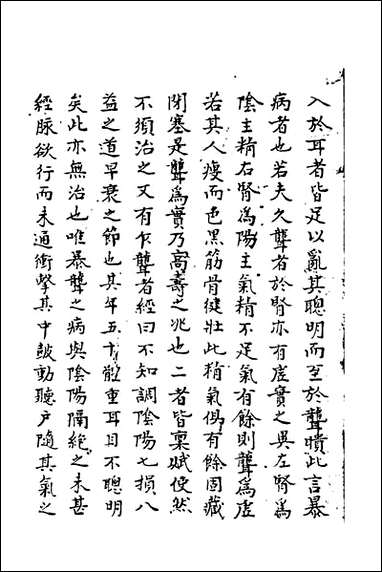 入於耳者皆足以亂其聰明而至於聾聵此言暴
病者也若夫久聾者於腎亦有虛實之異左腎爲
陰主精右腎爲陽主氣精不足氣有餘則聾爲虛
若其人瘦而色黑筋骨健壯此精氣俱有餘固藏
閉塞是聾爲實乃高壽之兆也二者皆稟賦使然
不須治之又有乍聾者經曰不知調陰陽七損八
益之道早衰之節也其年五十體重耳目不聰明
矣此亦無治也唯暴聾之病與陰陽隔絶之未甚
經脉欲行而未通衝擊其中鼓動聽户隨其氣之